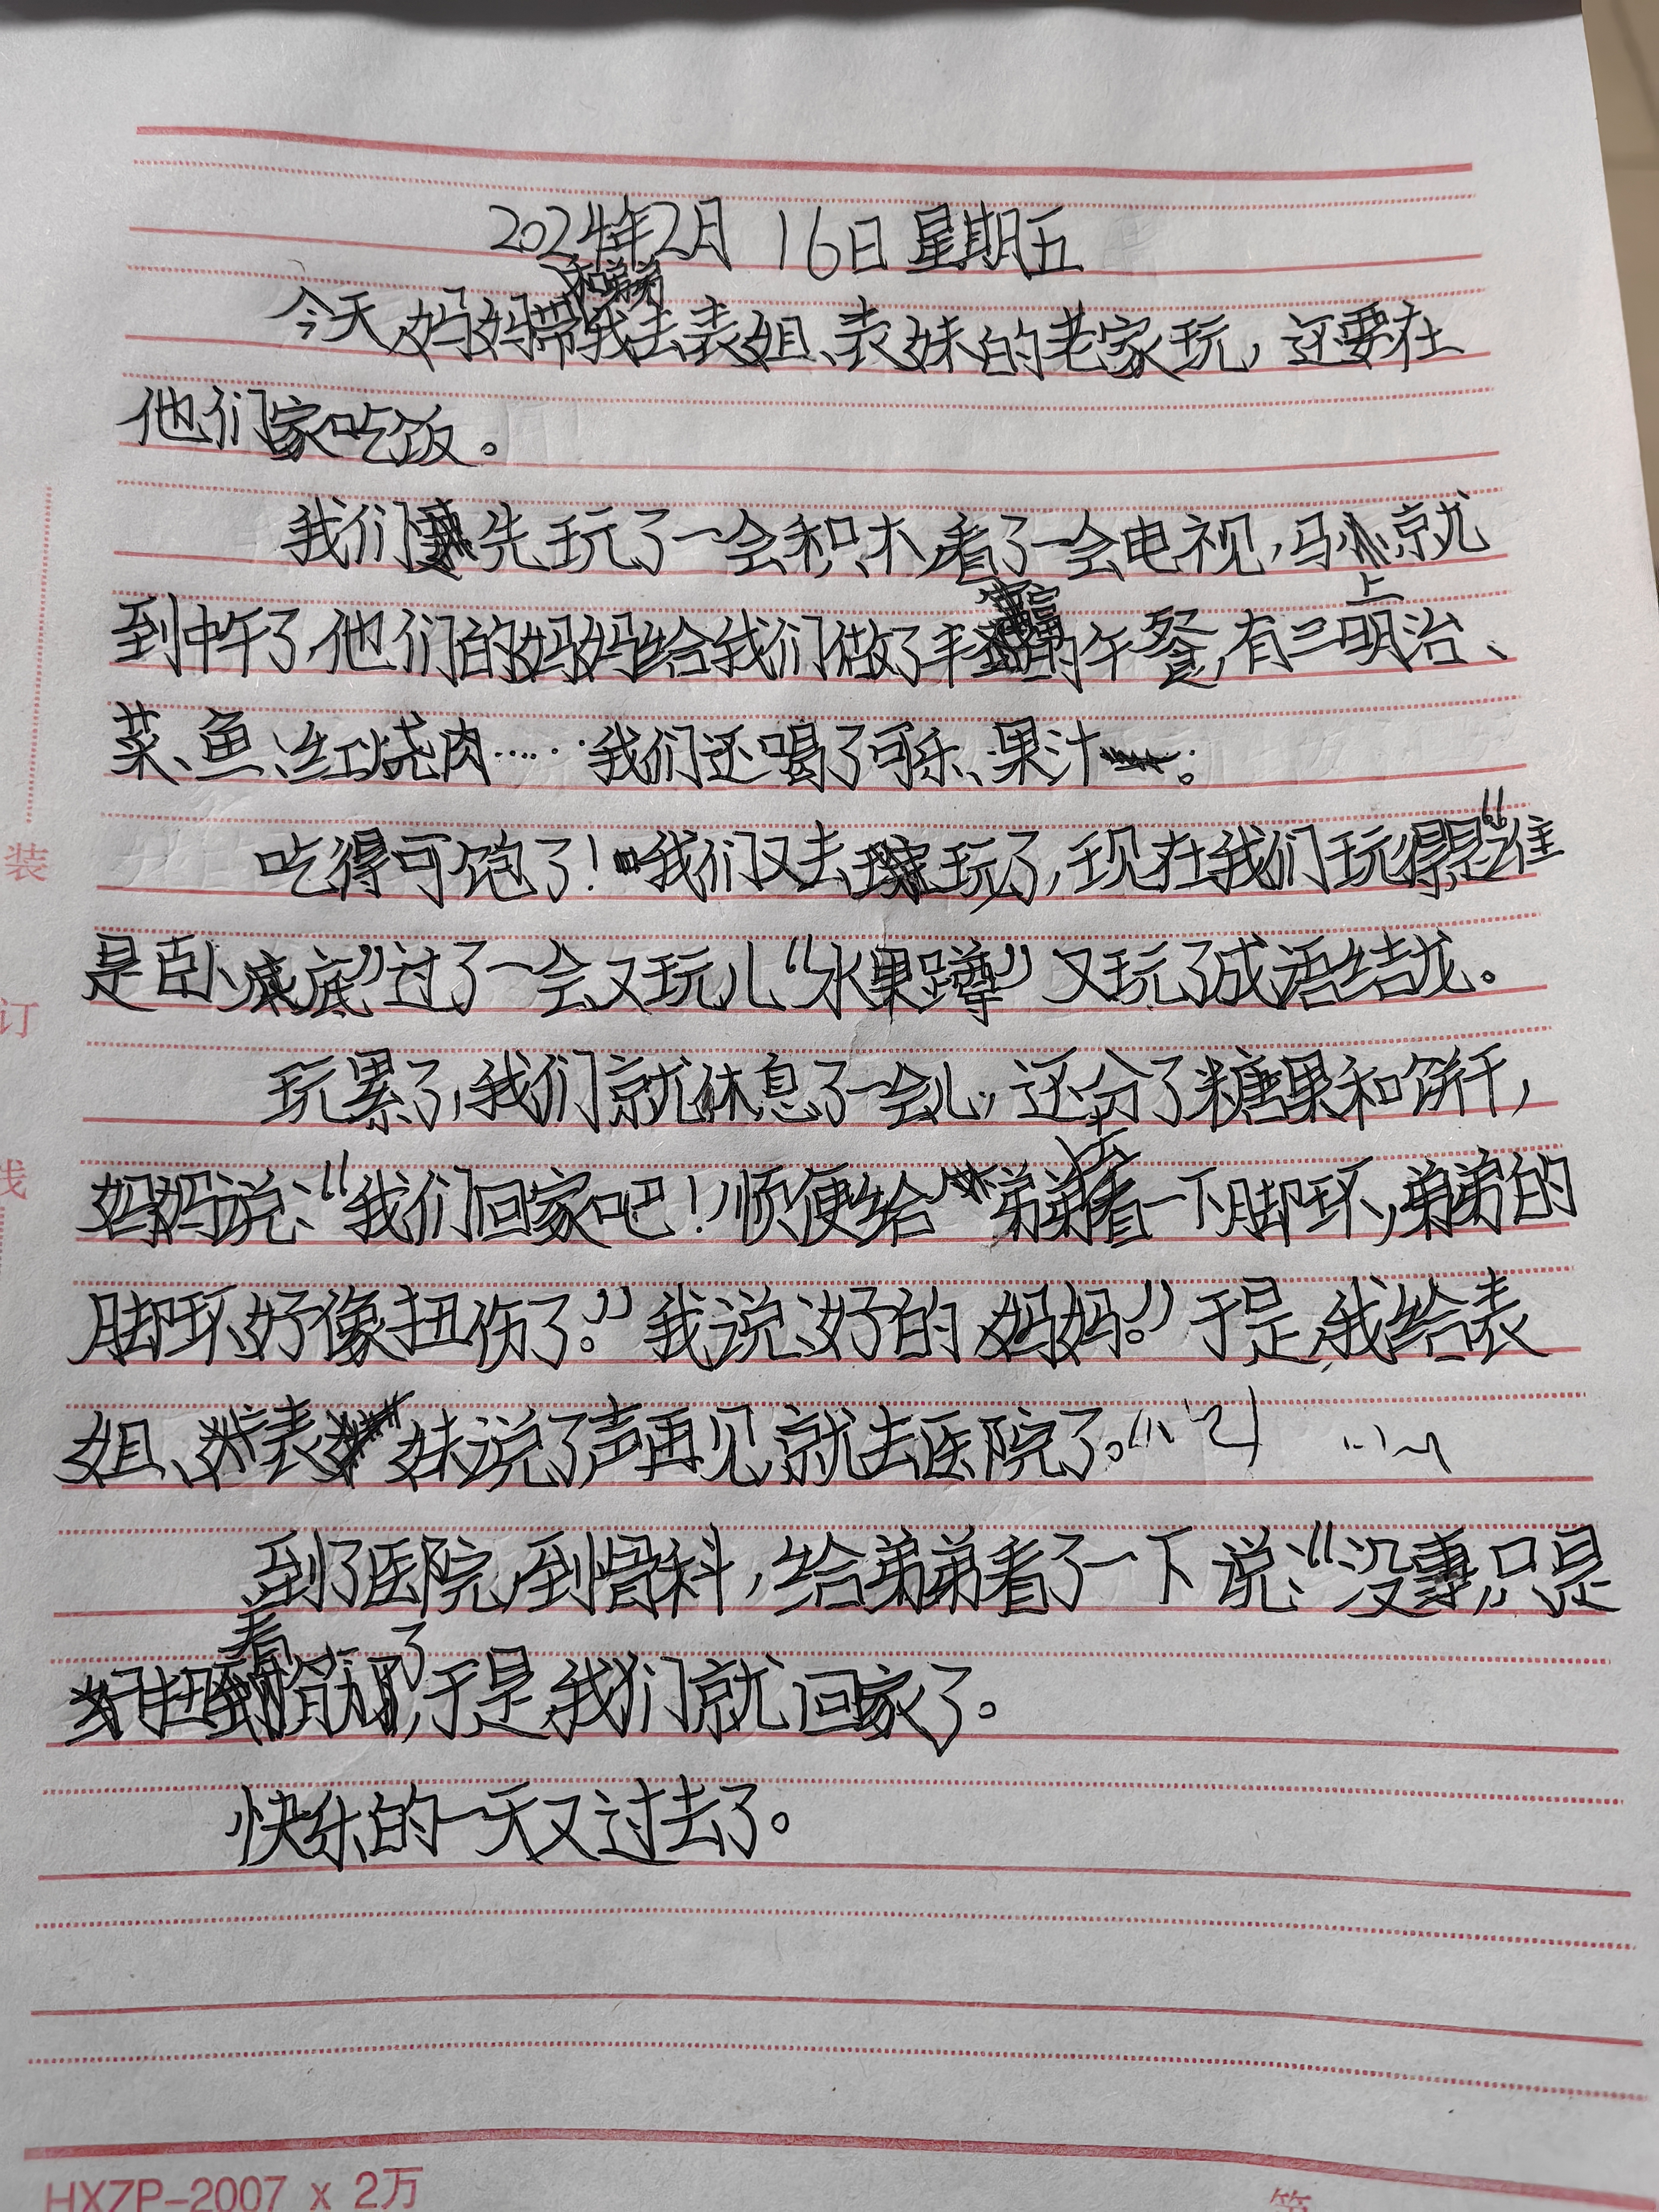 2024年2月16日 星期五
今天,妈妈带我和弟弟去表姐、表妹的老家玩,还要在
他们家吃饭。
我们先玩了一会积木,看了一会电视,马上就
到中午了,他们的妈妈给我们做了丰富的午餐,有三明治、
菜、鱼、红烧肉……我们还喝了可乐、果汁。
吃得可饱了!我们又去玩了,现在我们玩得是“谁
是卧底”过了一会又玩儿“水果蹲”又玩了成语结龙。
玩累了,我们就休息了一会儿,还分了糖果和饼干,
妈妈说:“我们回家吧!顺便给弟弟去看一下脚环,弟弟的
脚环好像扭伤了。”我说:好的,妈妈。”于是,我给表
姐、表妹说了声再见,就去医院了。
到了医院,到骨科,给弟弟看了一下说:“没事,只是
筋了,于是,我们就回家了。
快乐的一天又过去了。
装
订
线
HXZP-2007 x 2万